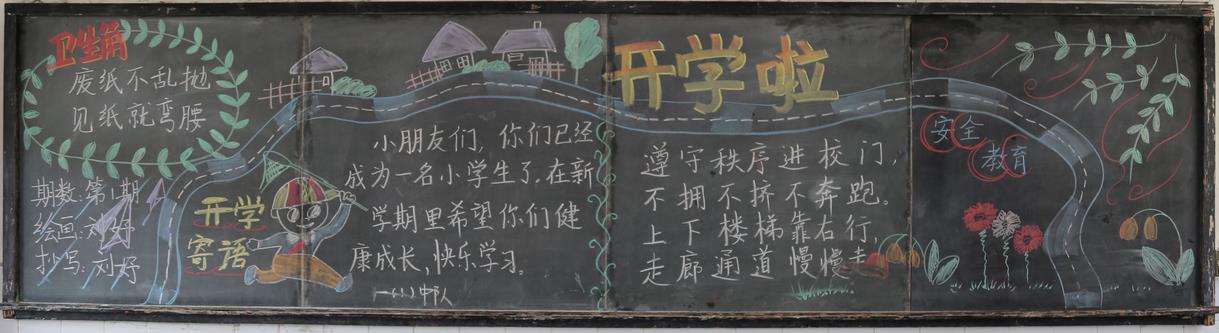 卫生角
废纸不乱抛
见纸就弯腰
期数:第1期
绘画:刘好
抄写:刘好
开学
寄语
小朋友们，你们已经
成为一名小学生了，在新
学期里希望你们健
康成长，快乐学习。
一(1)中队
开学啦
遵守秩序进校门，
不拥不挤不奔跑。
上下楼梯靠右行，
走廊通道慢慢走
安全
教育